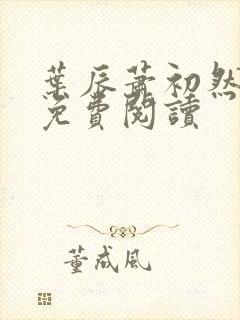 葉辰蕭初然
免費閱讀
董成風